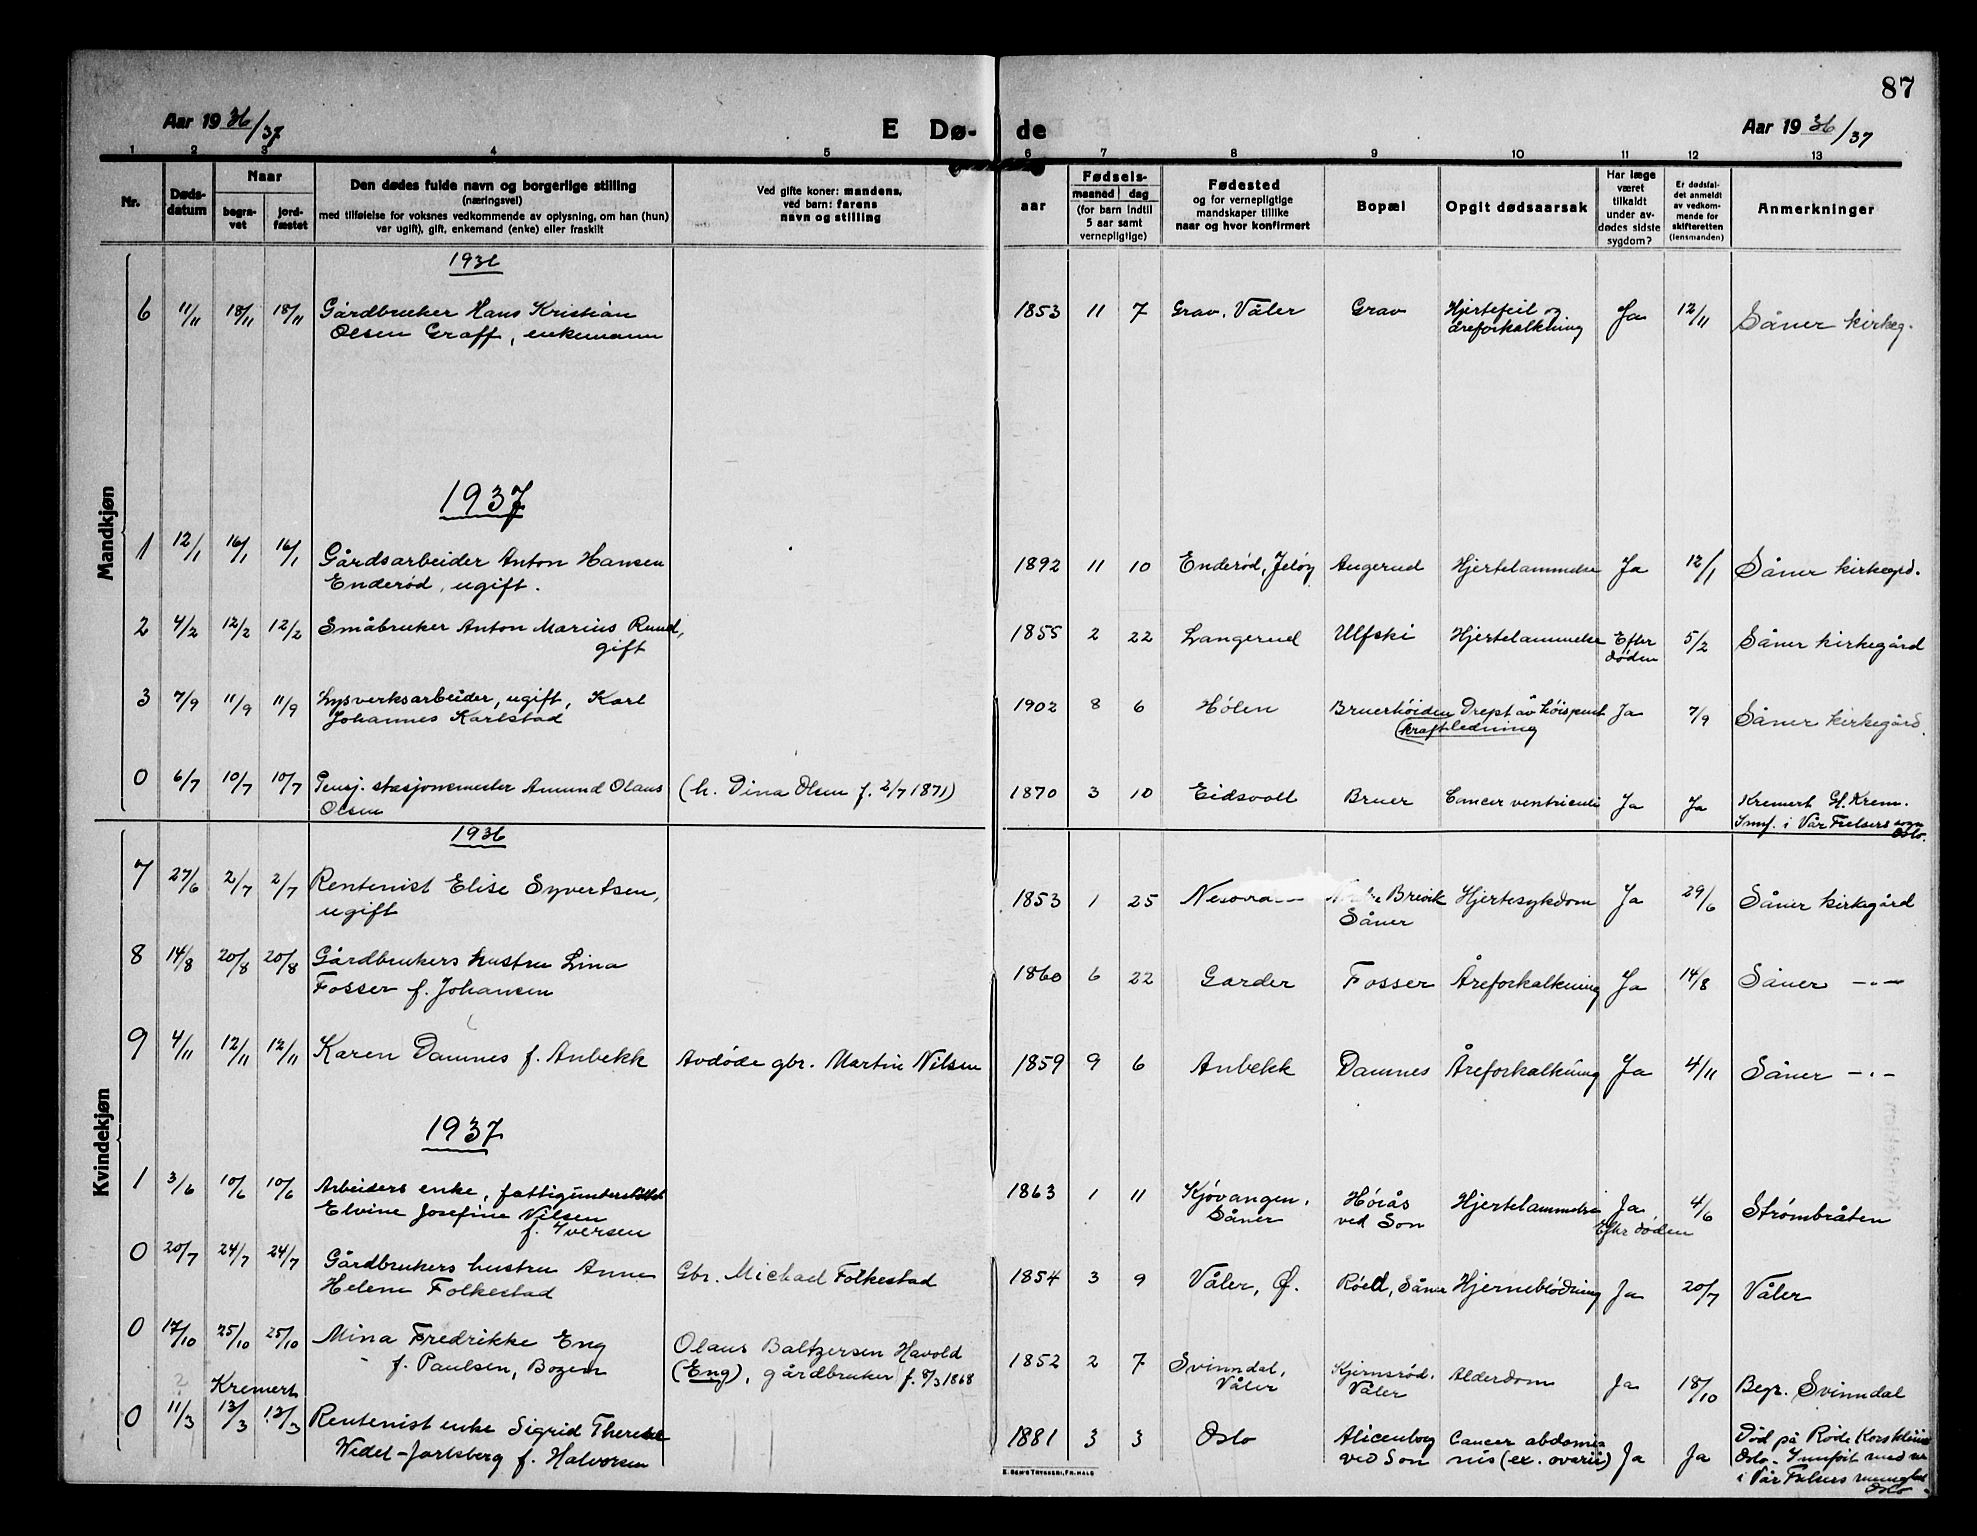 87
Aar 1936/37 E Dø- de Aar 1936/37
1 2 3 4 5 6 7 8 9 10 11 12 13
Nr.
Døds-
datum
Naar
begra-
vet
jord-
fæstet
Den dødes fulde navn og borgerlige stilling
(næringsvei)
med tilføielse for voksnes vedkommende av oplysning, om han (hun)
var ugift), gift, enkemand (enke) eller fraskilt
Ved gifte koner: mandens,
ved barn: farens
navn og stilling
aar
Fødsels-
maaned dag
(for barn indtil
5 aar samt
vernepligtige)
Fødested
og for vernepligtige
mandskaper tillike
naar og hvor konfirmert
Bopæl
Opgit dødsaarsak
Har læge
været
tilkaldt
under av-
dødes sidste
sygdom?
Er dødsfal-
det anmeldt
av vedkom-
mende for
skifteretten
(lensmanden)
Anmerkninger
Mandkjøn
1936
6 11/11 18/11 18/11 Gårdbruker Hans Kristian 1853 11 7 Grav, Våler Grav Hjertefeil og Ja 12/11 Såner kirkeg.
Olsen Graff, enkemann åreforkalkning
1937
1 12/1 16/1 16/1 Gårdsarbeider Anton Hansen 1892 11 10 Enderød, Jeløy Augerud Hjertelammelse Ja 12/1 Såner kirkegrd.
Enderød, ugift.
2 4/2 12/2 12/2 Småbruker Anton Marius Ruud, 1855 2 22 Langerud Ulfski Hjertelammelse Efter 5/2 Såner kirkegård
gift døden
3 7/9 11/9 11/9 Lysverksarbeider, ugift, Karl 1902 8 6 Hølen Bruerhøiden Drept av høispent Ja 7/9 Såner kirkegård.
Johannes Karlstad kraftledning
0 6/7 10/7 10/7 Pensj. stasjonsmester Amund Olaus (h. Dina Olsen f. 2/7 1871) 1870 3 10 Eidsvoll Bruer Cancer ventriculi Ja Ja Kremert Gl. Krem.
Olsen i Vår Frelsers
Oslo.
Kvindekjøn
1936
7 27/6 2/7 2/7 Rentenist Elise Syvertsen, 1853 1 25 Brevik Hjertesykdom Ja 29/6 Såner kirkegård
ugift Såner
8 14/8 20/8 20/8 Gårdbrukers hustru Lina 1860 6 22 Garder Fosser Åreforkalkning Ja 14/8 Såner -"-
Fosser f. Johansen
9 4/11 12/11 12/11 Karen Damnes f. Anbekk Avdøde gbr. Martin Nilsen 1859 9 6 Anbekk Damnes Åreforkalkning Ja 4/11 Såner -"-
1937
1 3/6 10/6 10/6 Arbeiders enke, fattigunderstøttet 1863 1 11 Kjøvangen, Høiås Hjertelammelse Ja 4/6 Strømbråten
Elvine Josefine Nilsen Såner ved Son Efter døden
f. Iversen
0 20/7 24/7 24/7 Gårdbrukers hustru Anne Gbr. Michael Folkestad 1854 3 9 Våler, Ø. Røed, Såner Hjerneblødning Ja 20/7 Våler
Helene Folkestad
0 17/10 25/10 25/10 Mina Fredrikke Eng Olaus Baltzersen Havold 1852 2 7 Svinndal, Kjernsrød, Alderdom Ja 18/10 Begr. Svinndal
f. Paulsen, Bozen (Eng), gårdbruker f. 8/3 1868 Våler Våler
2 Kremert
0 11/3 13/3 13/3 Rentenist enke Sigrid Therese 1881 3 3 Oslo Alicenborg Cancer abdomi- Ja Ja Død på Røde Kors klinik
Wedel-Jarlsberg f. Halvorsen ved Son nis (ex. ovarii) Oslo. med
i Vår Frelsers
Oslo
E. SEM'S TRYKKERI, FR.HALD